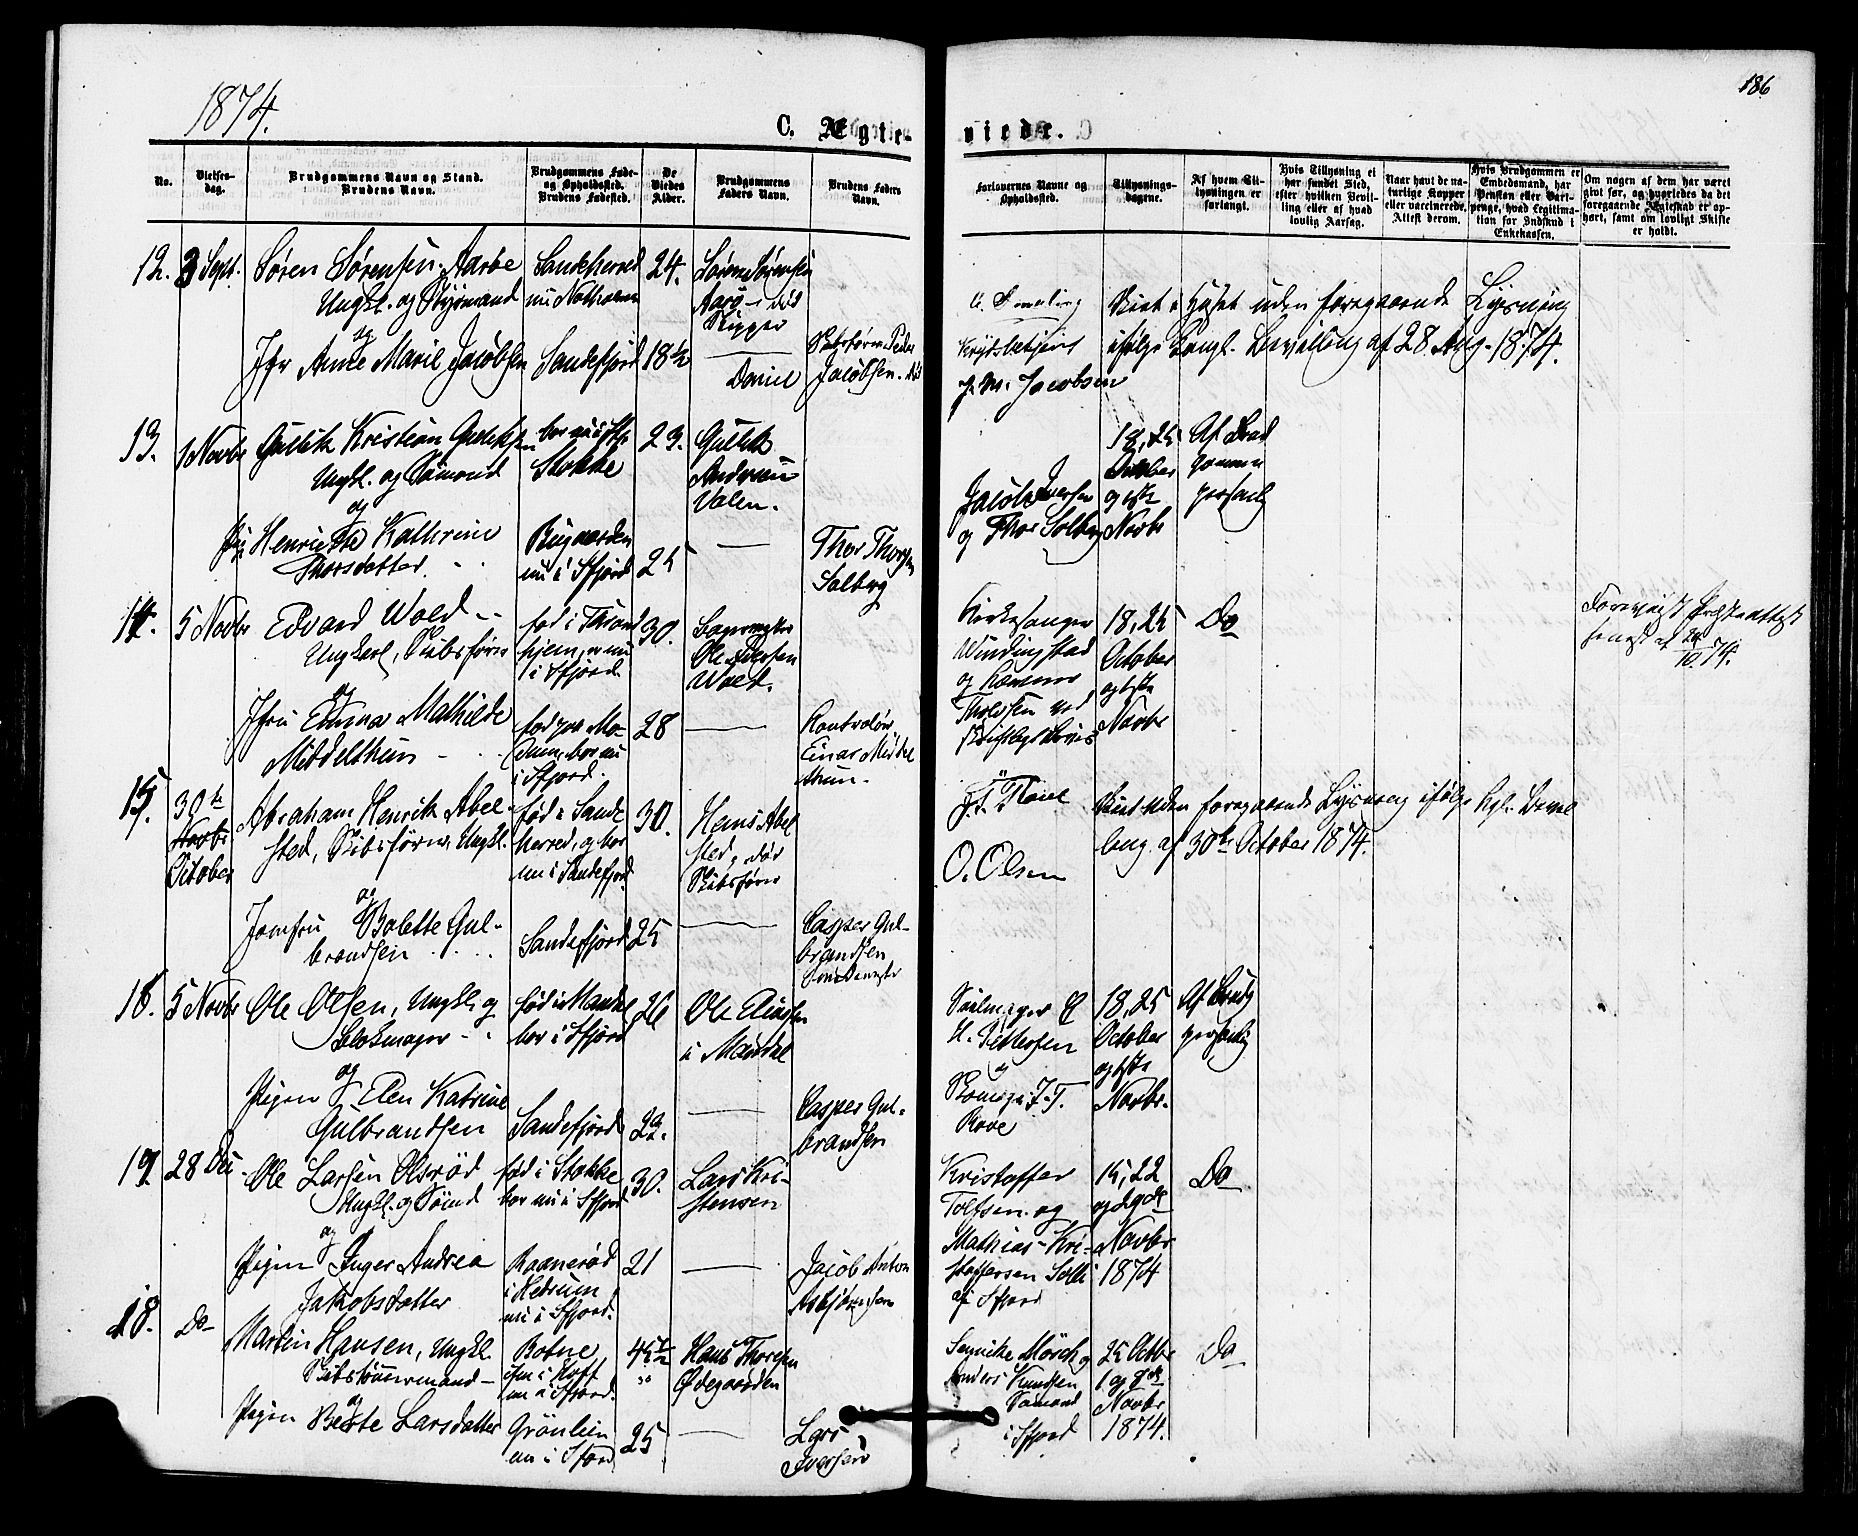 1874.
186
C. Ægte-
viede.
No.
Vielses-
dag.
Brudgommens Navn og Stand.
Brudens Navn.
Brudgommens Føde-
og Opholdssted.
Brudens Fødested.
De
Viedes
Alder.
Brudgommens
Faders Navn.
Brudens Faders
Navn.
Forlovernes Navne og
Opholdssted.
Tillysnings-
dagene.
Af hvem Til-
lysningen er
forlangt.
Hvis Tillysning ei
har fundet Sted,
efter hvilken Bevil-
ling eller af hvad
lovlig Aarsag.
Naar havt de na-
turlige Kopper
eller vaccinerede.
Attest derom.
Hvis Brudgommen er
Embedsmand, har
Pension eller Vart-
penge, hvad Legitima-
tion for Indskud i
Enkekassen.
Om nogen af dem har været
givt før, og hvorledes da det
foregaaende Ægteskab er op-
hørt, samt om lovligt Skifte
er holdt.
12. 3 Sept. Søren Sørensen Aarbe
Ungkl. og Styrmand
og
Jfr Anne Marie Jacobsen
Sandeherred
nu
Sandefjord
24.
18½
Søren Sørensen
Aarö - død
Skipper
Daniel
Skibsfører Peder
Jacobsen. død
J. M. Jacobsen
Viet i Huset uden foregaaende Lysning
ifølge Kongl. Bevilling af 28 Aug. 1874.
13. 1 Novbr Gullik Kristian Gulliksen
Ungkl. og Sømand
og
Henriette Kathrine
Thorsdatter
bor nu i Sfj.
Stokke
Bugaarden
nu i Sfjord
23.
25
Gullik
Andersen
Valen.
Thor Thorsen
Solberg
Jacob Iversen
og Thor Solberg
18, 25
October
og 1ste
Novbr
Af Brud
gommen
personlig
14. 5 Novbr Edvard Wold
Ungkarl, Skibsfører
og
Jfru Emma Mathilde
Middelthun
fød i Thrond
hjem, nu
i Sfjord
fød paa Mo-
dum, bor nu
i Sfjord.
30.
28
Bagermester
Ole Pedersen
Wold.
Kontrolør
Einar Middel
thun.
Kirkesanger
Windingstad
og
Tholfsen ved
18, 25
October
og 1ste
Novbr
Do
15. 30te
Novbr
October
Abraham Henrik Abel-
sted, Skibsfører, Ungkl.
og
Jomfru Bolette Gul-
brandsen
fød i Sande
herred, og bor
nu i Sandefjord.
Sandefjord
30.
25
Hans Abel
sted, død
Skibsfører
Casper Gul-
brandsen
O. Olsen
Viet uden foregaaende Lysning ifølge Kgl. Bevil
ling af 30te October 1874.
16. 5 Novbr Ole Olsen, Ungkl. og
Blokmager
og
Pigen Elen Katrine
Gulbrandsen
fød i Mandal
bor i Sfjord
Sandefjord
26
22.
Ole
i Mandal
Casper Gul-
brandsen
Seilmager
H. Pettersen
og
J. T.
Rove
18, 25
October
og 1ste
Novbr.
Af Brudg
personlig
17. 28 De. Ole Larsen Olsrød
Ungkl. og Sömd
og
Pigen Inger Andrea
Jakobsdatter
fød i Stokke
bor nu i Sfjord
Raanerød
i Hedrum
nu i Sfjord.
30.
21
Lars Kri-
stensen
Jacob Anton
Kristoffer
Tolfsen og
Mathias Kri-
stoffersen Solli
af Sfjord
15, 22
og 29de
Novbr
1874
Do
18. Do Martin Hansen, Ungkl.
Skibstømmermand
og
Pigen Berte Larsdatter
Botne
i Hoff
nu i Sfjord.
Grönlien
nu i Sfjord
45½
25
Hans Thoresen
Ødegaarden
Lars
Iversen
Mörch og
Anders Knudsen
Sømand
i Sfjord
25 Octbr
1 og 8de
Novbr
1874.
Do